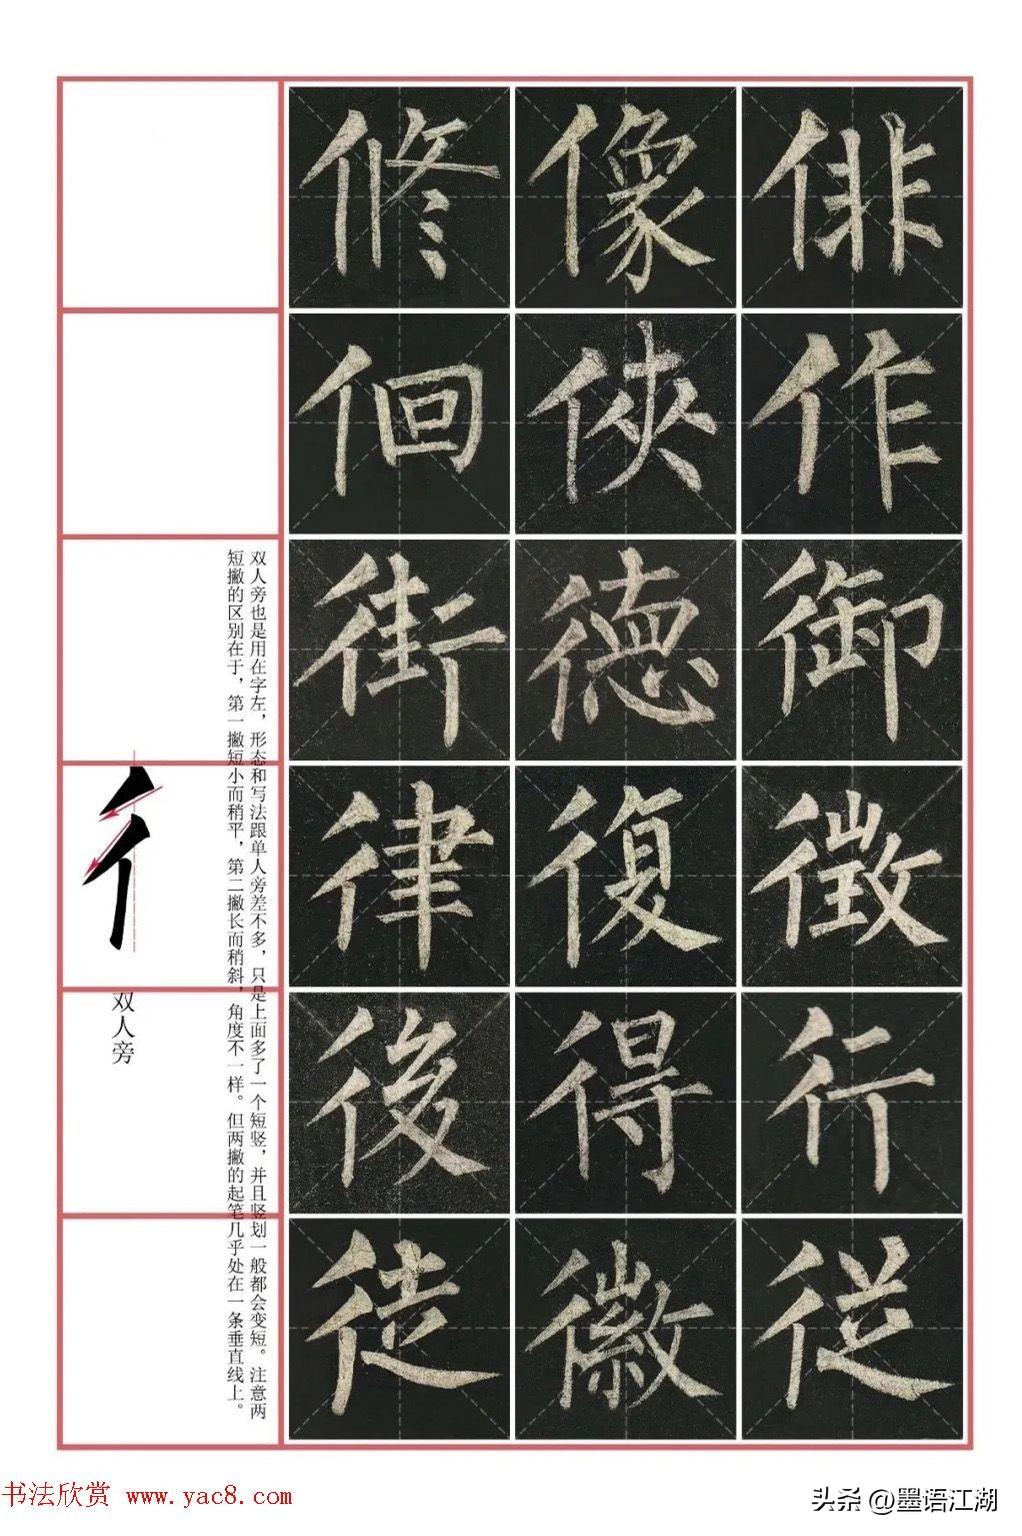 俳像修
作俠佪
御德街
徴復律
行得後
従徽徒
双人旁也是用在字左，形态和写法跟单人旁差不多，只是上面多了一个短竖，并且竖划一般都会变短。注意两
短撇的区别在于，第一撇短小而稍平，第二撇长而稍斜，角度不一样。但两撇的起笔几乎处在一条垂直线上。
彳
双人旁
书法欣赏 www.yac8.com
头条 @墨语江湖